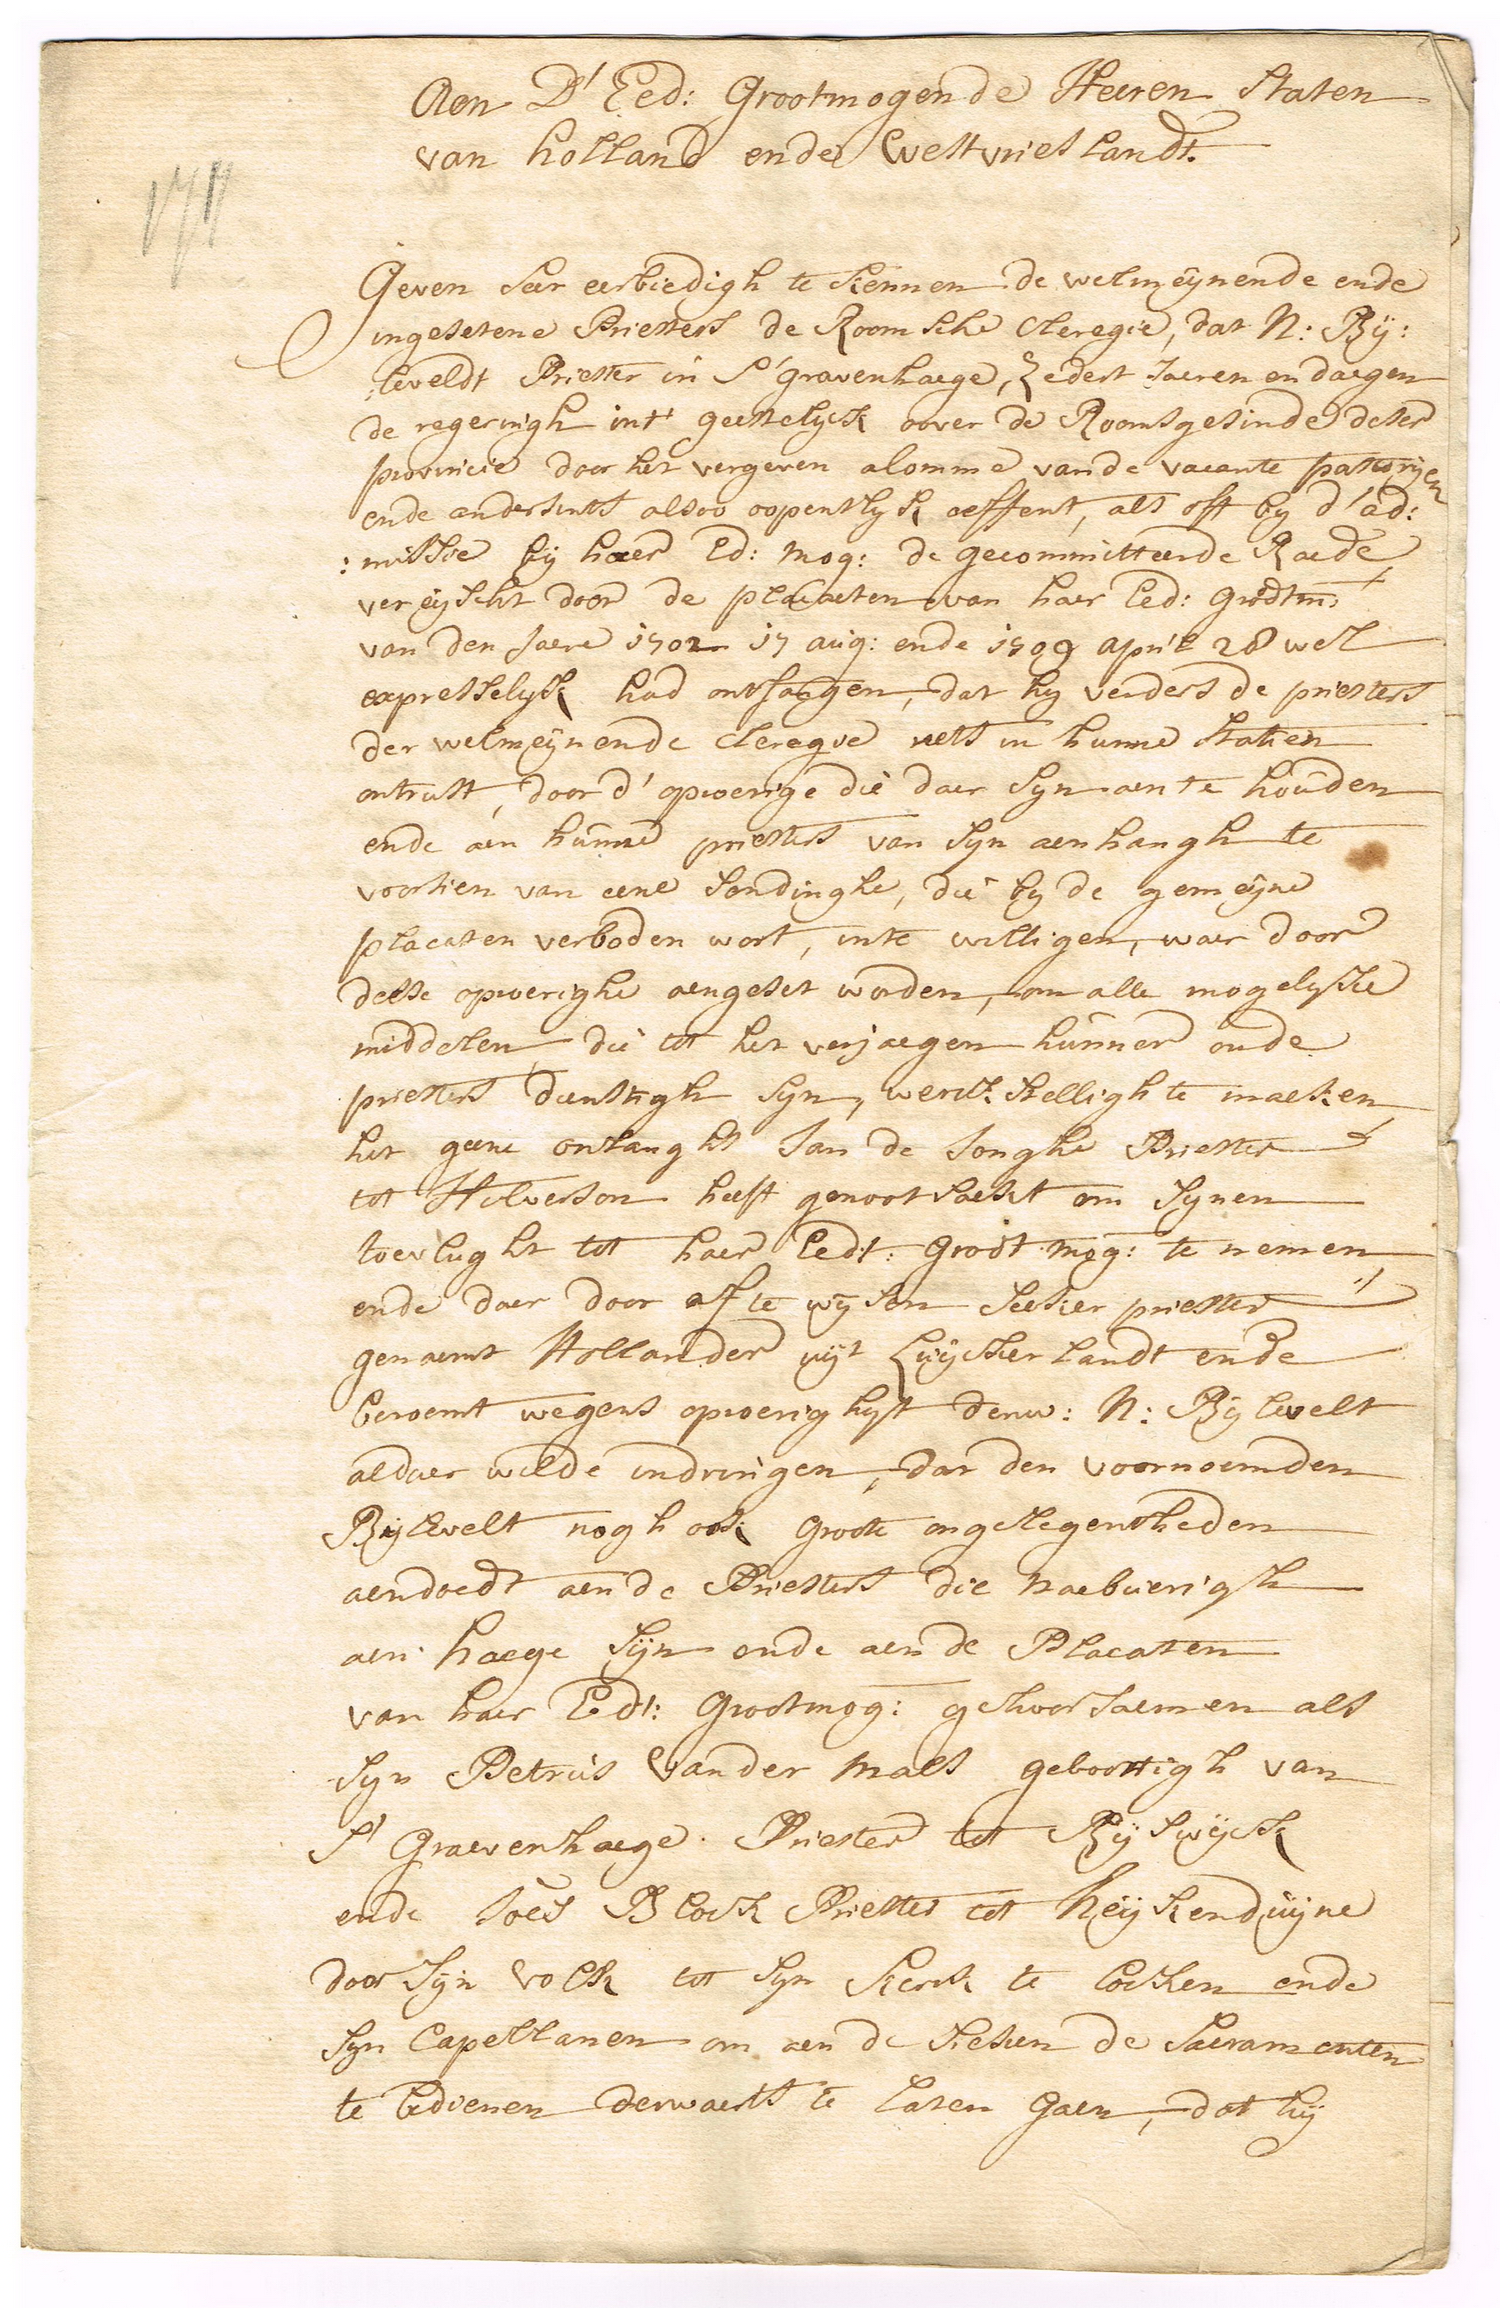 Aen D' Eed: Grootmogende Heeren Staten
van holland ende Westvrieslandt.
Geven seer eerbiedigh te kennen de welmeynende ende
ingesetene Priesters de Roomsche Cleregie, dat N: Bij:
:leveldt Priester in S'gravenhaege, Zedert Jaeren en daegen
de regeringh int' geestelyck oover de Roomsgesinde deser
provincie door het vergeven alomme vande vacante pastorijen
ende andersints alsoo oopentlyck oeffent, als oft by d'ad:
:missie bij haer Ed: Mog: de gecommitteerde Raede
vereyscht door de placaeten van haer Eed: Grootm:
van den Jaere 1702 17 aug: ende 1709 april 28 wel
expresselyck had ontfaegen, dat hy verders de priesters
der welmeynende cleregie in hunne Statien
ontrust, door d' oproerige die daer syn aen te houden
ende aen hunne priesters van syn aenhangh te
voorsien van eene sendinghe, die by de gemeyne
placaten verboden wort, inte willigen, waer door
deese oproerighe aengeset worden, om alle mogelyke
middelen die tot het verjaegen hunner oude
priesters dienstigh syn, werckstelligh te maeken,
het geene onlanghs Jan de Jonghe Priester
tot Hilverson heeft genootsaekt om synen
toevlught tot haer Eedt: Groot mog: te nemen,
ende daer door af te wysen seeker priester
genaemt Hollander uyt Luyckerlandt ende
beroemt wegens oproerighyt N: Bijlevelt
aldaer wilde indringen, dat den voornoemden
Bijlevelt nogh ook groote ongelegentheden
aendoedt aende Priesters die naebuerigh
aen haege sijn ende aende Placaten
van haer Eedt: Grootmog: gehoorsaemen als
syn Petrus Vander Maes geboortigh van
S' Graevenhaege. Priester tot Ryswyck
ende Joës Block Priester tot heykenduyne
door sijn volk tot syn kerck te locken ende
syn Capellanen om aen de sieken de sacramenten
te bedienen derwaerts te laten gaen, dat hij